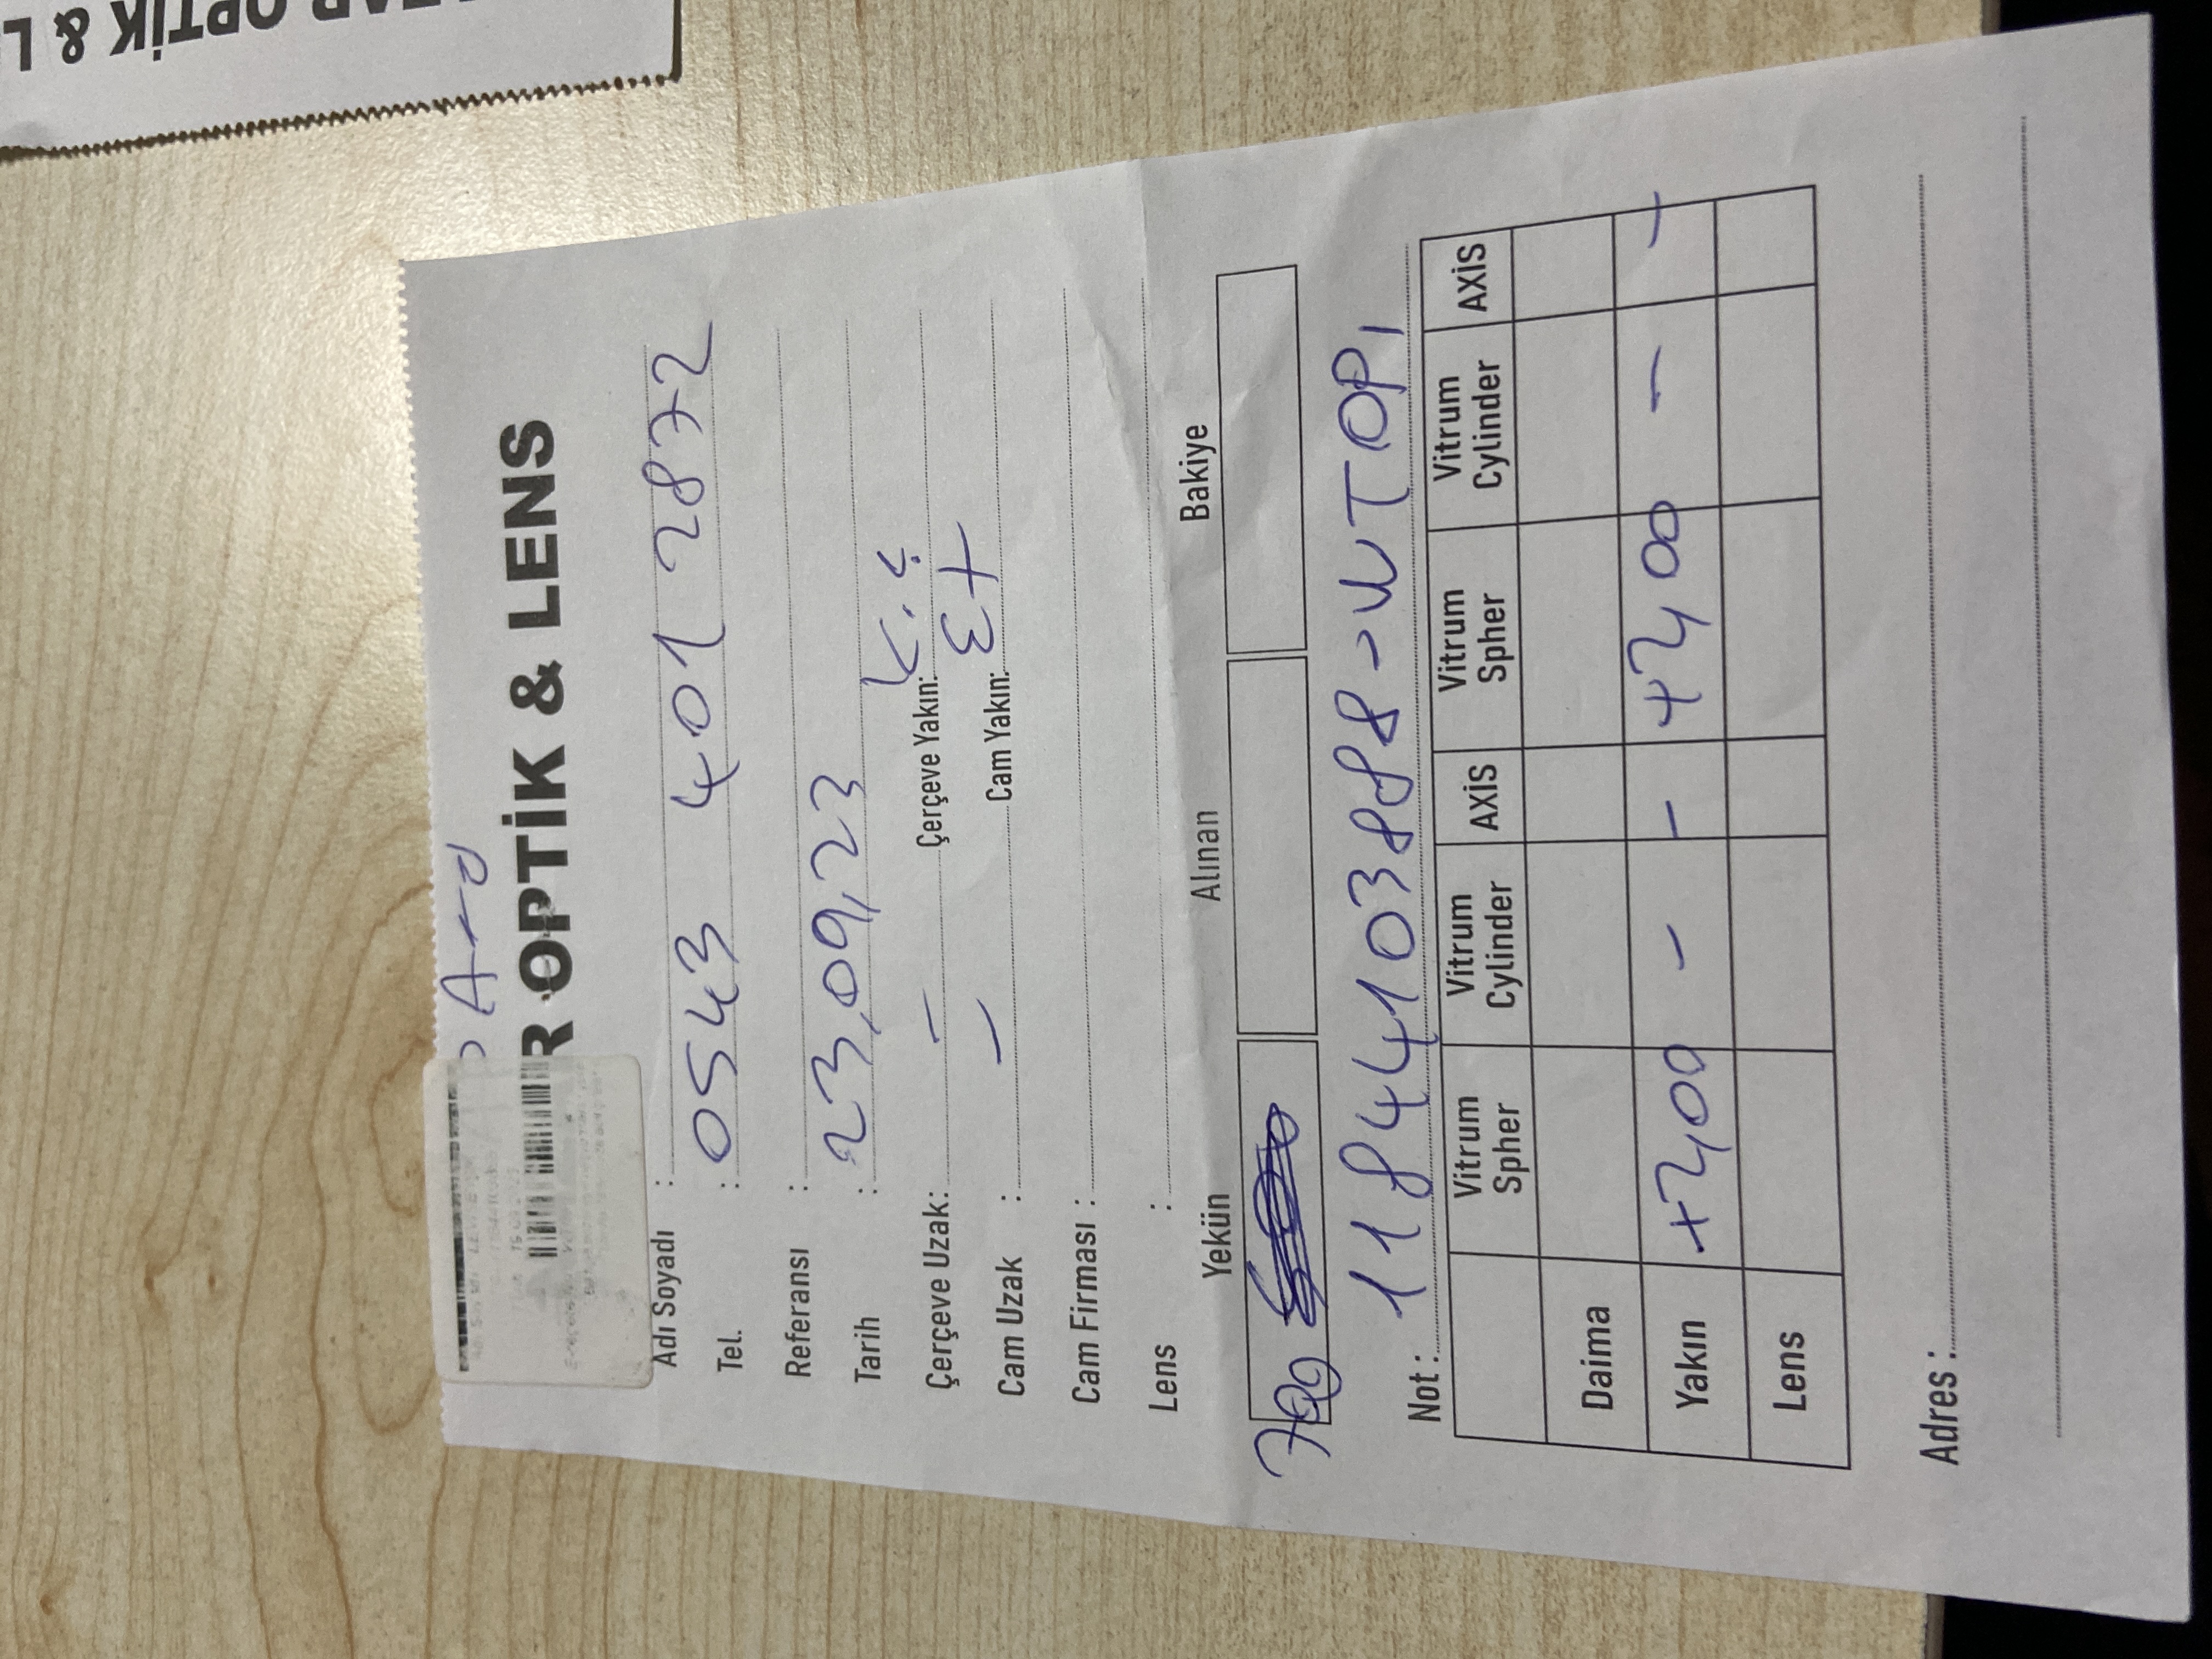 R OPTİK & LENS
Adı Soyadı :
Tel. : 0543 401 2872
Referansı :
Tarih : 23,09,23
Çerçeve Uzak: - Çerçeve Yakın: K.Ç
Cam Uzak : - Cam Yakın:
Cam Firması :
Lens :
Yekün Alınan Bakiye
700
Not : 11844103888-
Vitrum Spher Vitrum Cylinder AXİS Vitrum Spher Vitrum Cylinder AXİS
Daima
Yakın +2,00 - - +2,00 - -
Lens
Adres :
OPTİK &